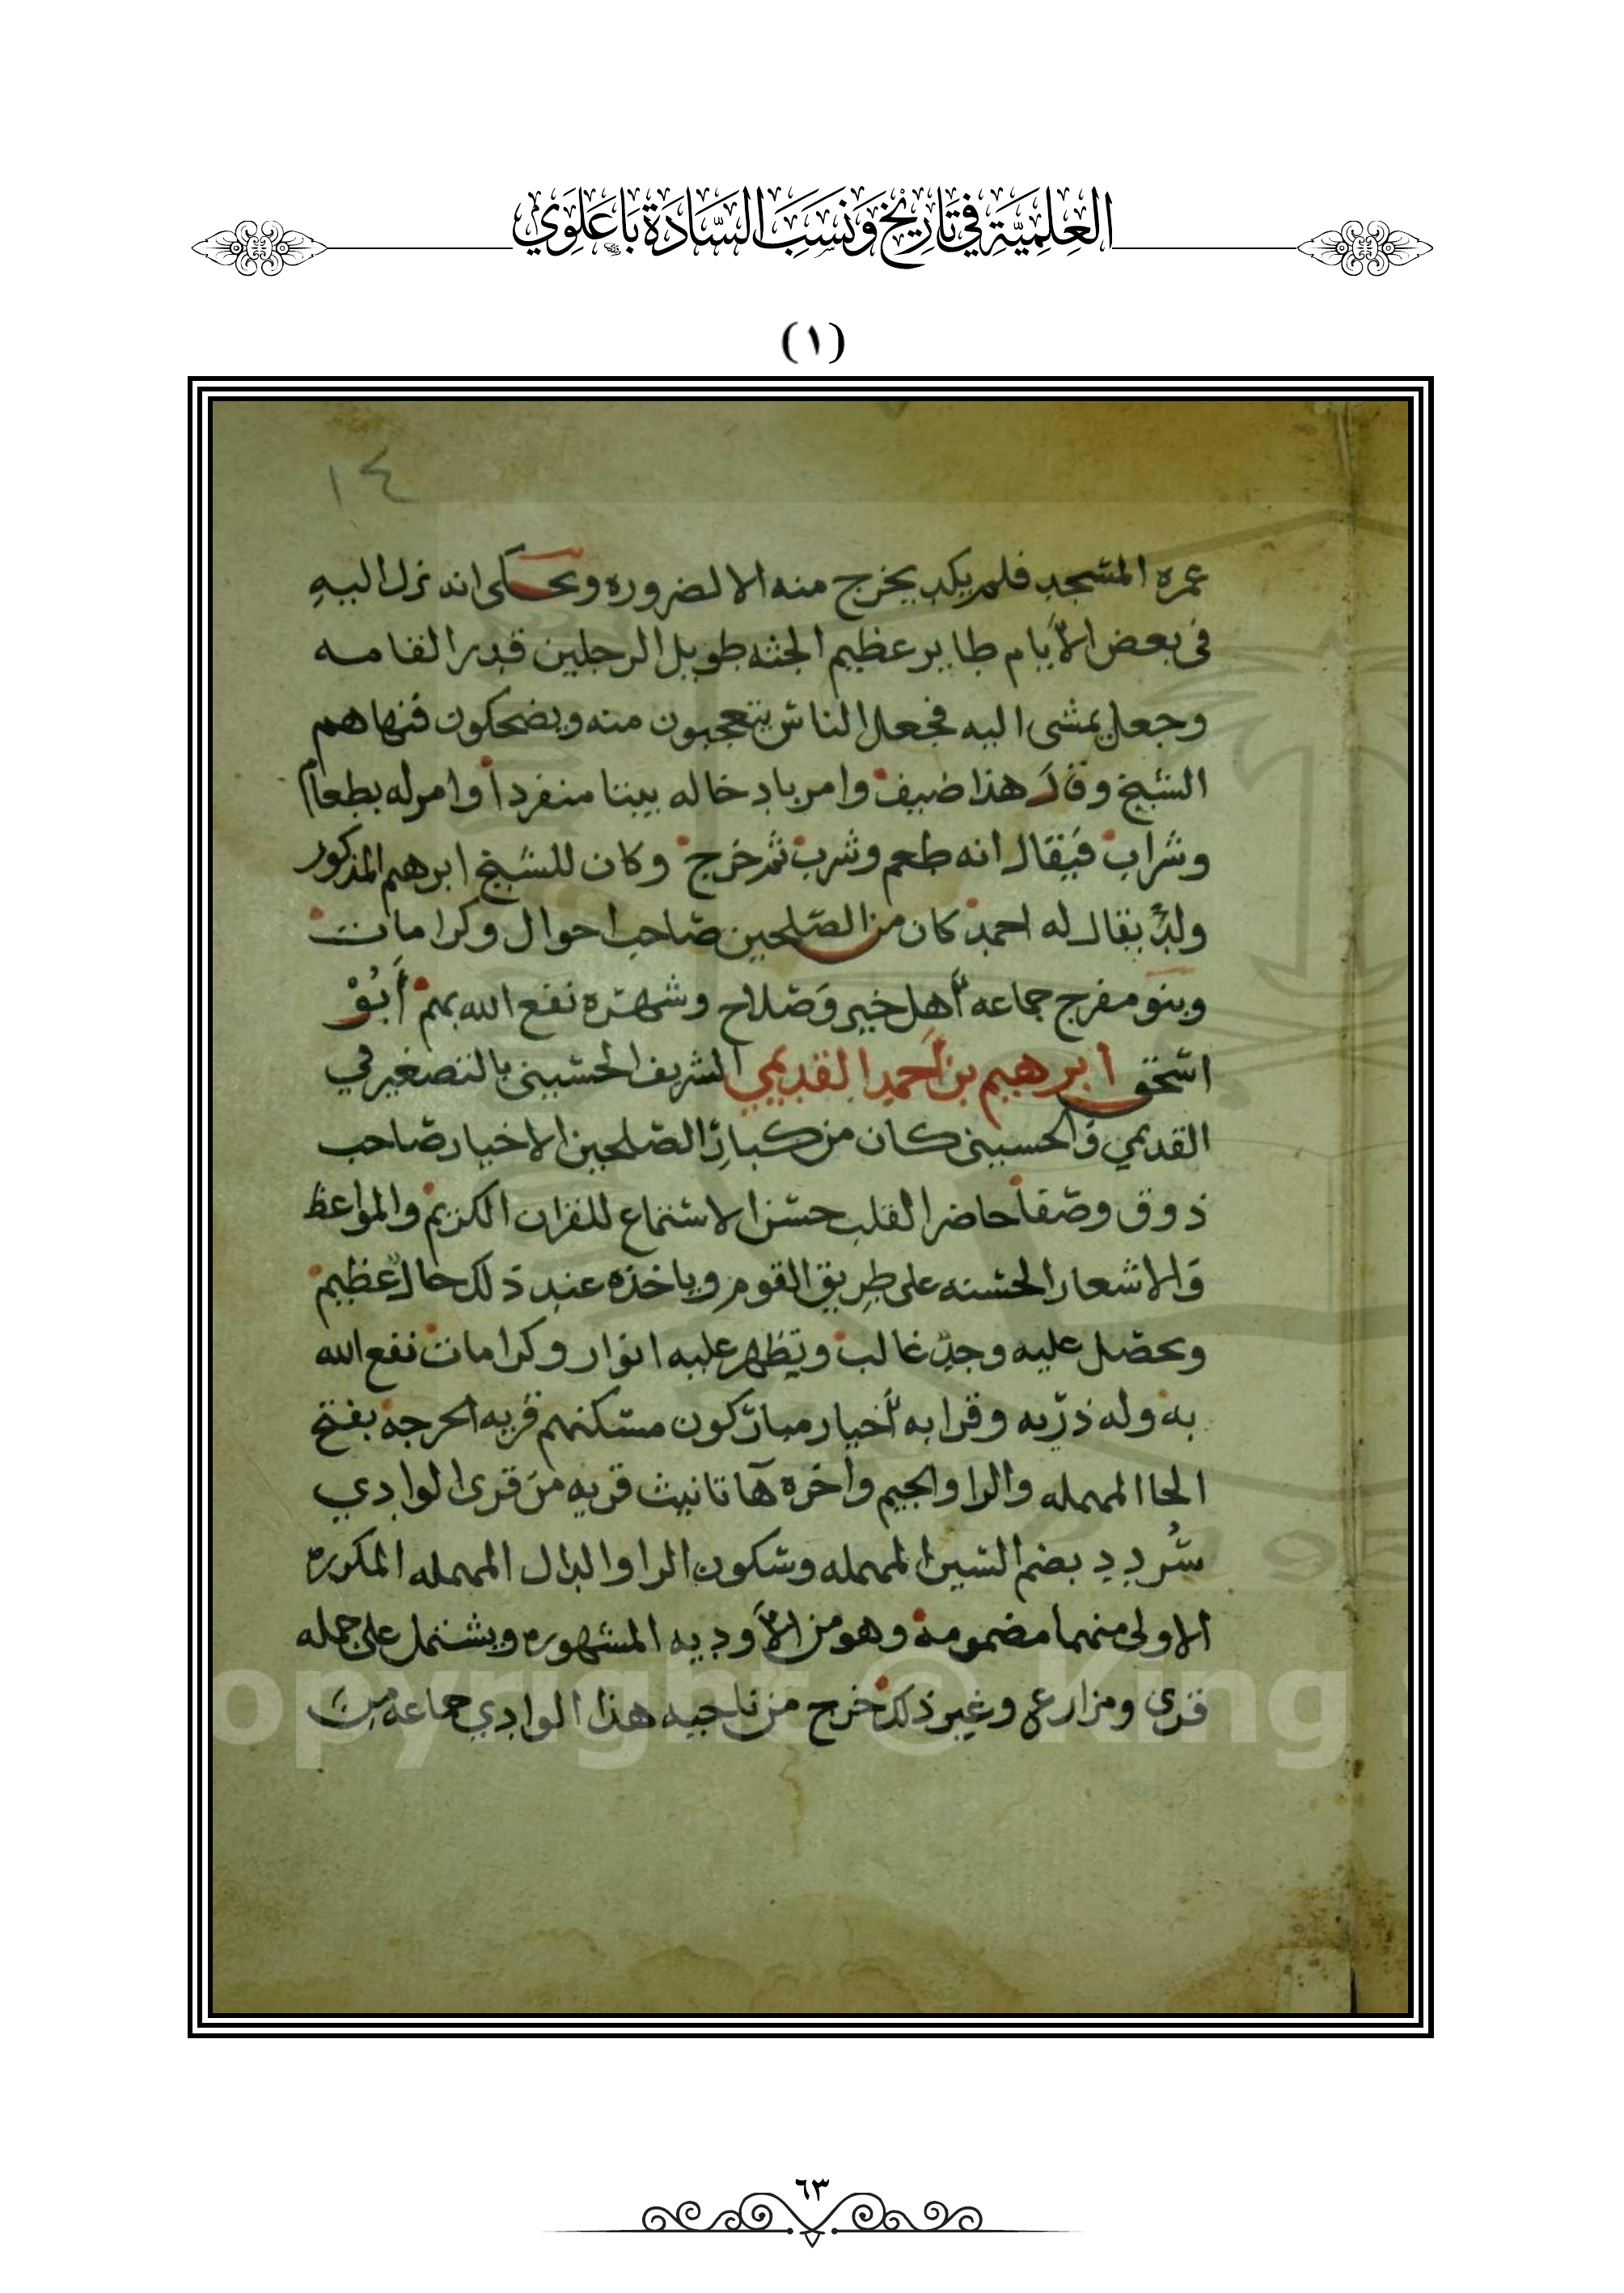 العِلمِيَّة في تَارِيْخ وَنَسَبِ السَّادَة بَاعَلَوِي
(١)
١٤
عمره المسجد فلم يكد يخرج منه الا لضروره ويحكى انه نزل اليهِ
فى بعض الأيام طاير عظيم الجثه طويل الرجلين قدر القامه
وجعل يمشى اليه فجعل الناس يتعجبون منه ويضحكون فنهاهم
الشيخ وقال هذا ضيف وامر بادخاله بيتا منفردا وامر له بطعام
وشراب فيقال انه طعم وشرب ثم خرج وكان للشيخ ابرهيم المذكور
ولدٌ يقال له احمد كان من الصلحين صاحب احوال وكرامات
وبنو مفرج جماعه أهل خير وصلاح وشهره نفع الله بهم أبُوْ
اسحق ابرهيم بن أحمد القديمي الشريف الحسيني بالتصغير في
القديمي والحسيني كان من كبار الصلحين الاخيار صاحب
ذوق وصفا حاضر القلب حسن الاستماع للقران الكريم والمواعظ
والاشعار الحسنه على طريق القوم وياخذه عند ذلك حال عظيم
ويحصل عليه وجد غالب ويظهر عليه انوار وكرامات نفع الله
به وله ذريه وقرابه أخيار مباركون مسكنهم قريه الحرجه بفتح
الحا المهمله والرا والجيم واخره ها تانيث قريه من قرى الوادي
سُردد بضم السين المهمله وسكون الرا والدال المهمله المكرره
الاولى منهما مضمومه وهو من الأوديه المشهوره ويشتمل على جمله
قرى ومزارع وغير ذلك خرج من ناحيه هذا الوادي جماعه من
opyright © King
٦٣